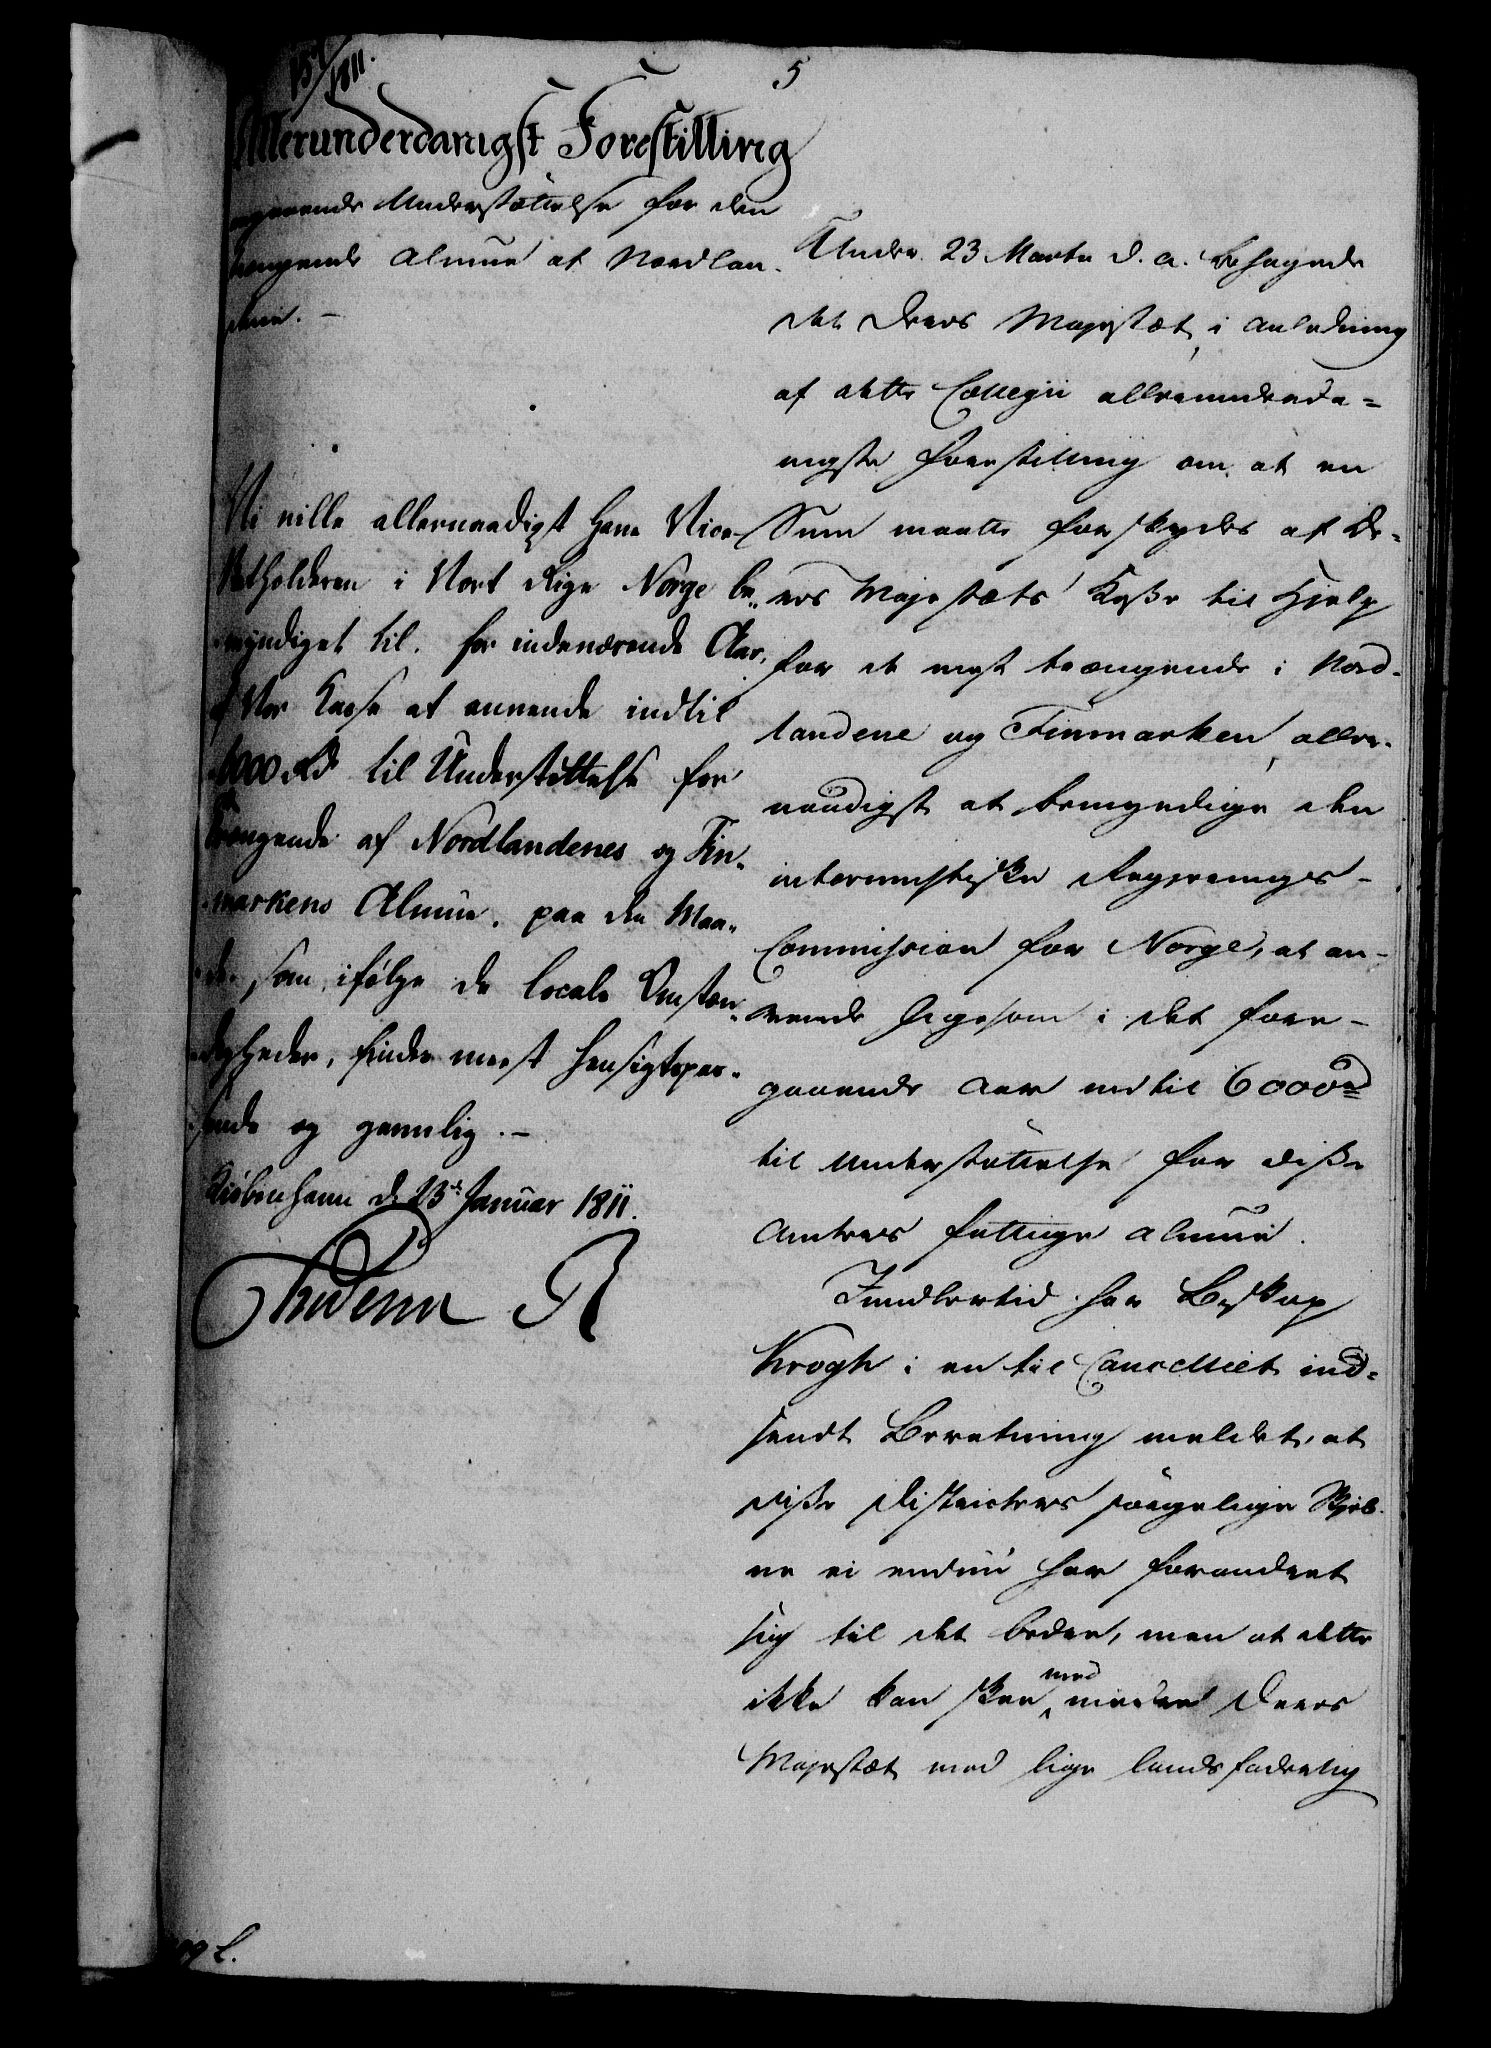 15/1 1811.
5
Allerunderdanigst Forestilling
angaaende Understøttelse for den
trængende Almue at Nordlan-
dene. –
Vi ville allernaadigst have Vice-
Statholderen i Vort Rige Norge be-
myndiget til, for indeværende Aar,
af Vor Kasse at anvende indtil
6000 Rd til Understøttelse for
Trængende af Nordlandenes og Fin-
markens Almue, paa den Maa-
de, som, ifølge de locale Omstæn-
digheder, findes meest hensigtspas-
sende og gavnlig. –
Kiøbenhavn d. 15de Januar 1811.
Friderich R
Under 23 Marts d. A. behagede
det Deres Majestæt, i Anledning
af dette Collegii allerunderda-
nigste Forestilling om at en
Sum maatte forskydes af De-
res Majestæts Kasse til Hjelp
for de meest trængende i Nord-
landene og Finmarken, aller-
naadigst at bemyndige den
interimistiske Regjerings-
Commission for Norge, at an-
vende ligesom i det fore-
gaaende Aar indtil 6000 rd
til Understøttelse for disse
Amters fattige Almue.
Imidlertid har Biskop
Krogh i en til Cancelliet ind-
sendt Beretning meldet, at
disse Districters sørgelige Skjæb-
ne ei endnu har forandret
sig til det bedre, men at dette
ikke kan skee, med mindre Deres
Majestæt med lige landsfaderlig